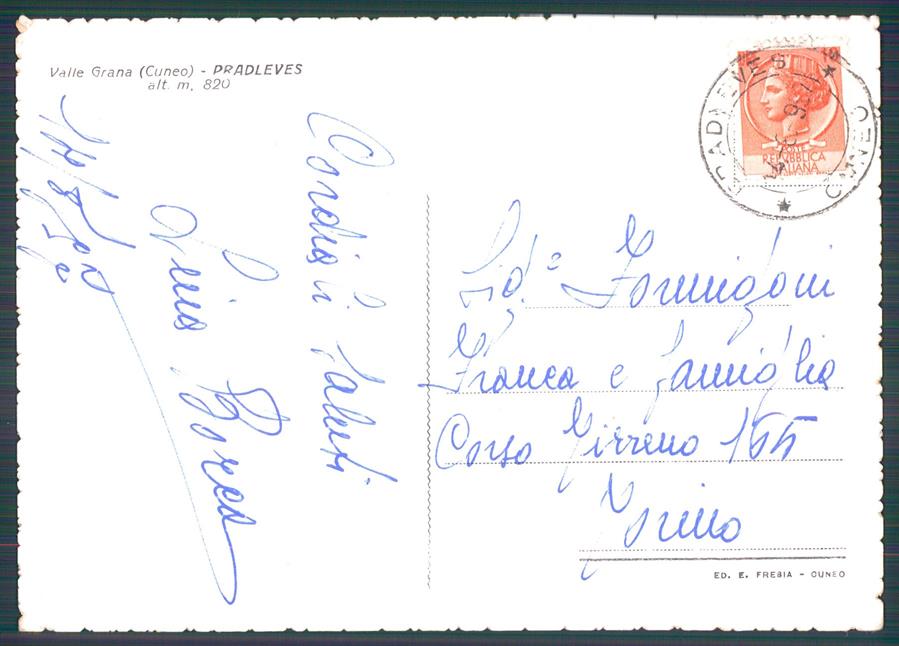 Valle Grana (Cuneo) - PRADLEVES
alt. m. 820
Cordiali saluti
Lina
PRADLEVES
CUNEO
POSTE
REPVBBLICA
ITALIANA
Sig.a Formigoni
Franca e famiglia
Corso Tirreno 155
Torino
ED. E. FREBIA - CUNEO